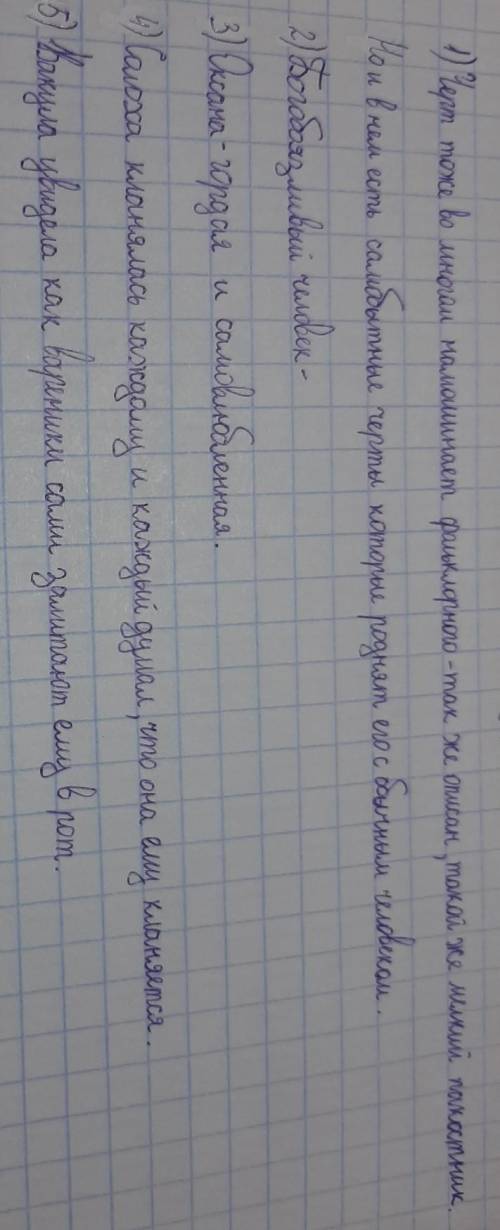 1) Черт тоже во многом напоминает фольклорного - так же описан, такой же мелкий пакостник.
Но и в нем есть самобытные черты которые роднят его с обычным человеком.
2) Богобоязливый человек -
3) Оксана - гордая и самовлюбленная.
4) Солоха кланялась каждому и каждый думал, что она ему кланяется.
5) Вакула увидела как вареники сами залитают ему в рот.